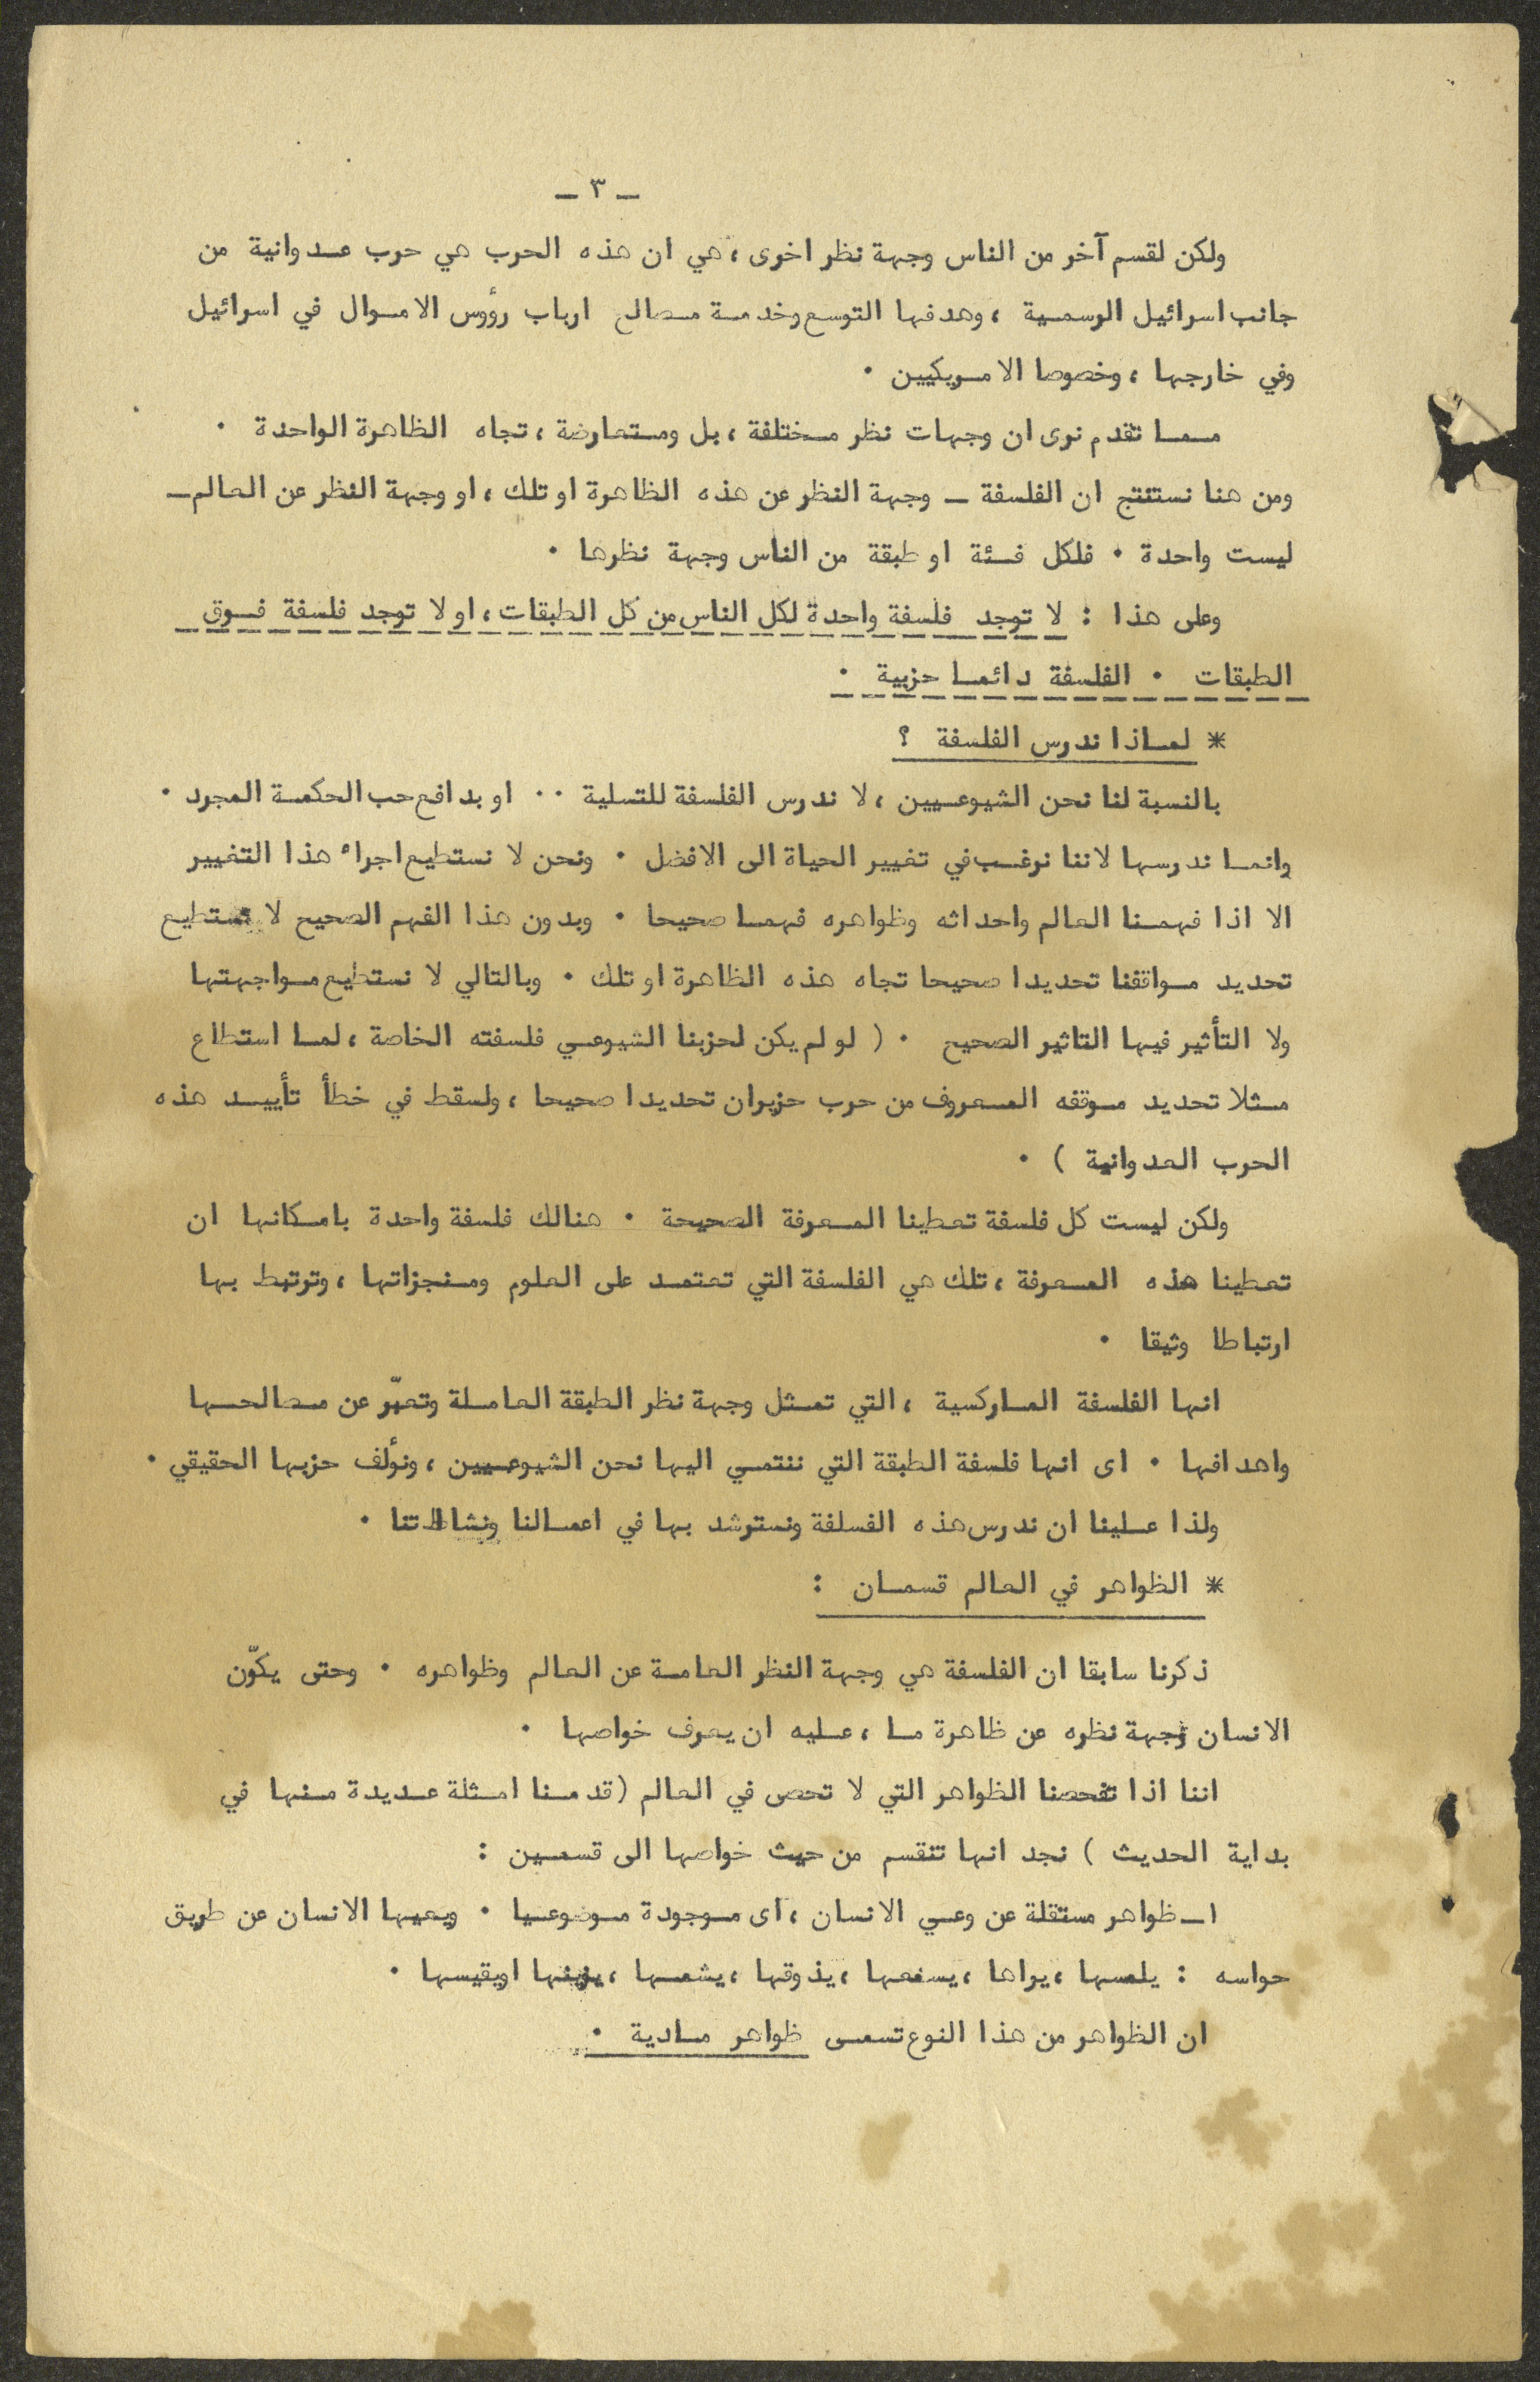 ـ ٣ ـ
ولكن لقسم آخر من الناس وجهة نظر اخرى ، هي ان هذه الحرب هي حرب عدوانية من
جانب اسرائيل الرسمية ، وهدفها التوسع وخدمة مصالح ارباب رؤوس الاموال في اسرائيل
وفي خارجها ، وخصوصا الامريكيين .
مما تقدم نرى ان وجهات نظر مختلفة ، بل ومتعارضة ، تجاه الظاهرة الواحدة .
ومن هنا نستنتج ان الفلسفة ـ وجهة النظر عن هذه الظاهرة او تلك ، او وجهة النظر عن العالم ـ
ليست واحدة . فلكل فئة او طبقة من الناس وجهة نظرها .
وعلى هذا : لا توجد فلسفة واحدة لكل الناس من كل الطبقات ، او لا توجد فلسفة فوق
الطبقات . الفلسفة دائما حزبية .
* لماذا ندرس الفلسفة ؟
بالنسبة لنا نحن الشيوعيين ، لا ندرس الفلسفة للتسلية .. او بدافع حب الحكمة المجرد .
وانما ندرسها لاننا نرغب في تغيير الحياة الى الافضل . ونحن لا نستطيع اجراء هذا التغيير
الا اذا فهمنا العالم واحداثه وظواهره فهما صحيحا . وبدون هذا الفهم الصحيح لا نستطيع
تحديد مواقفنا تحديدا صحيحا تجاه هذه الظاهرة او تلك . وبالتالي لا نستطيع مواجهتها
ولا التأثير فيها التاثير الصحيح . ( لو لم يكن لحزبنا الشيوعي فلسفته الخاصة ، لما استطاع
مثلا تحديد موقفه المعروف من حرب حزيران تحديدا صحيحا ، ولسقط في خطأ تأييد هذه
الحرب العدوانية ) .
ولكن ليست كل فلسفة تعطينا المعرفة الصحيحة . هنالك فلسفة واحدة بامكانها ان
تعطينا هذه المعرفة ، تلك هي الفلسفة التي تعتمد على العلوم ومنجزاتها ، وترتبط بها
ارتباطا وثيقا .
انها الفلسفة الماركسية ، التي تمثل وجهة نظر الطبقة العاملة وتعبّر عن مصالحها
واهدافها . اى انها فلسفة الطبقة التي ننتمي اليها نحن الشيوعيين ، ونؤلف حزبها الحقيقي .
ولذا علينا ان ندرس هذه الفسلفة ونسترشد بها في اعمالنا ونشاطاتنا .
* الظواهر في العالم قسمان :
ذكرنا سابقا ان الفلسفة هي وجهة النظر العامة عن العالم وظواهره . وحتى يكوّن
الانسان وجهة نظره عن ظاهرة ما ، عليه ان يعرف خواصها .
اننا اذا تفحصنا الظواهر التي لا تحصى في العالم ( قدمنا امثلة عديدة منها في
بداية الحديث ) نجد انها تنقسم من حيث خواصها الى قسمين :
١ـ ظواهر مستقلة عن وعي الانسان ، اى موجودة موضوعيا . ويعيها الانسان عن طريق
حواسه : يلمسها ، يراها ، يسمعها ، يذوقها ، يشمها ، يزنها او يقيسها .
ان الظواهر من هذا النوع تسمى ظواهر مادية .